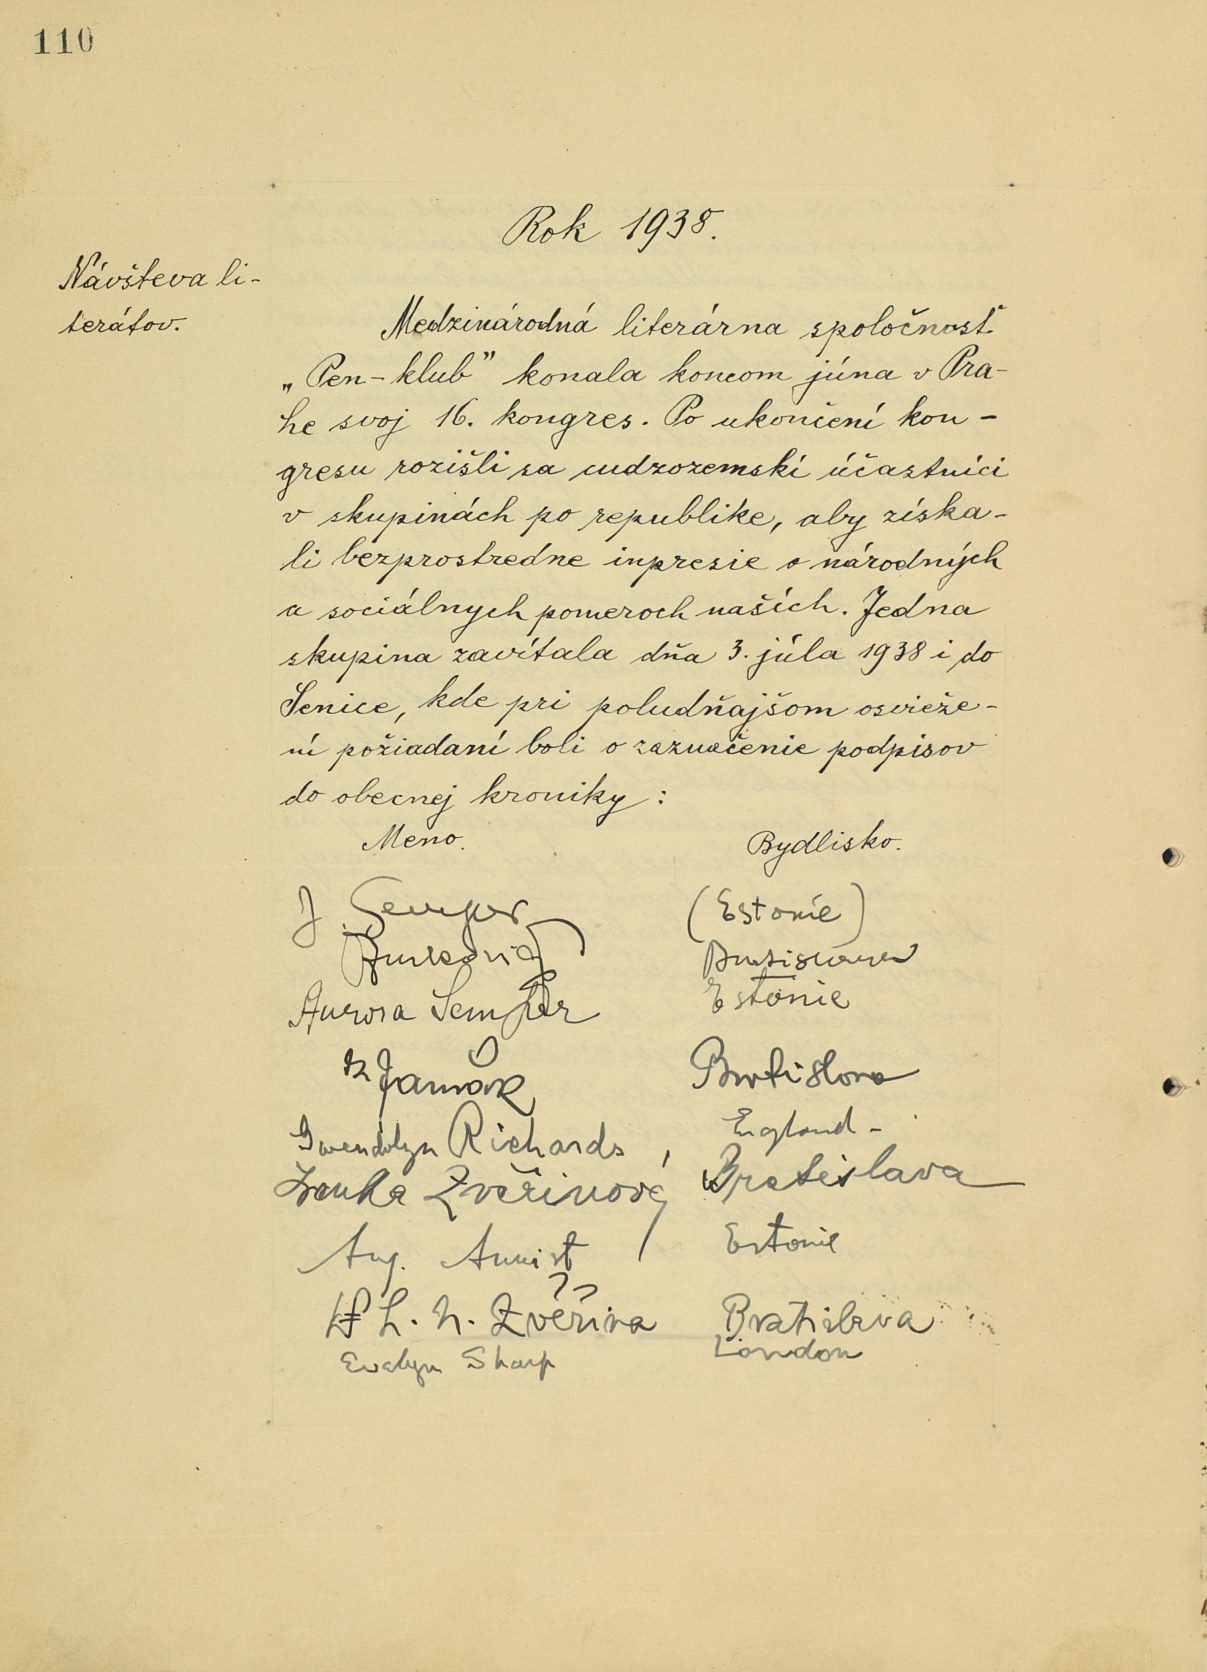 110
Rok 1938.
Návšteva li-
terátov.
Medzinárodná literárna spoločnosť
„Pen-klub” konala koncom júna v Pra-
he svoj 16. kongres. Po ukončení kon-
gresu rozišli sa cudzozemskí účastníci
v skupinách po republike, aby získa-
li bezprostredne inpresie o národných
a sociálnych pomeroch našich. Jedna
skupina zavítala dňa 3. júla 1938 i do
Senice, kde pri poludňajšom osvieže-
ní požiadaní boli o zaznačenie podpisov
do obecnej kroniky:
Meno. Bydlisko.
J. Semper (Estonie)
Bratislava
Aurora Semper Estonie
Jamák Bratislava
Gwendolyn Richards, England -
Zvěřinová Bratislava
Aug. Annist Estonie
L. N. Zvěřina Bratislava
Evelyn Sharp London